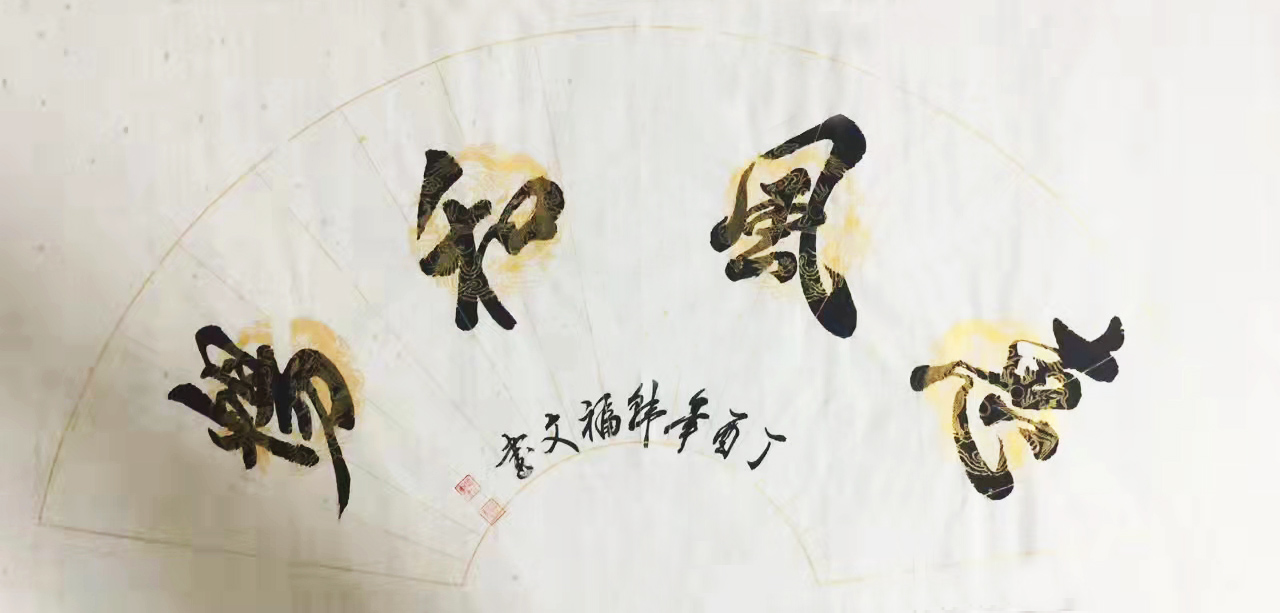 惠風和暢
丁酉年韩福文書